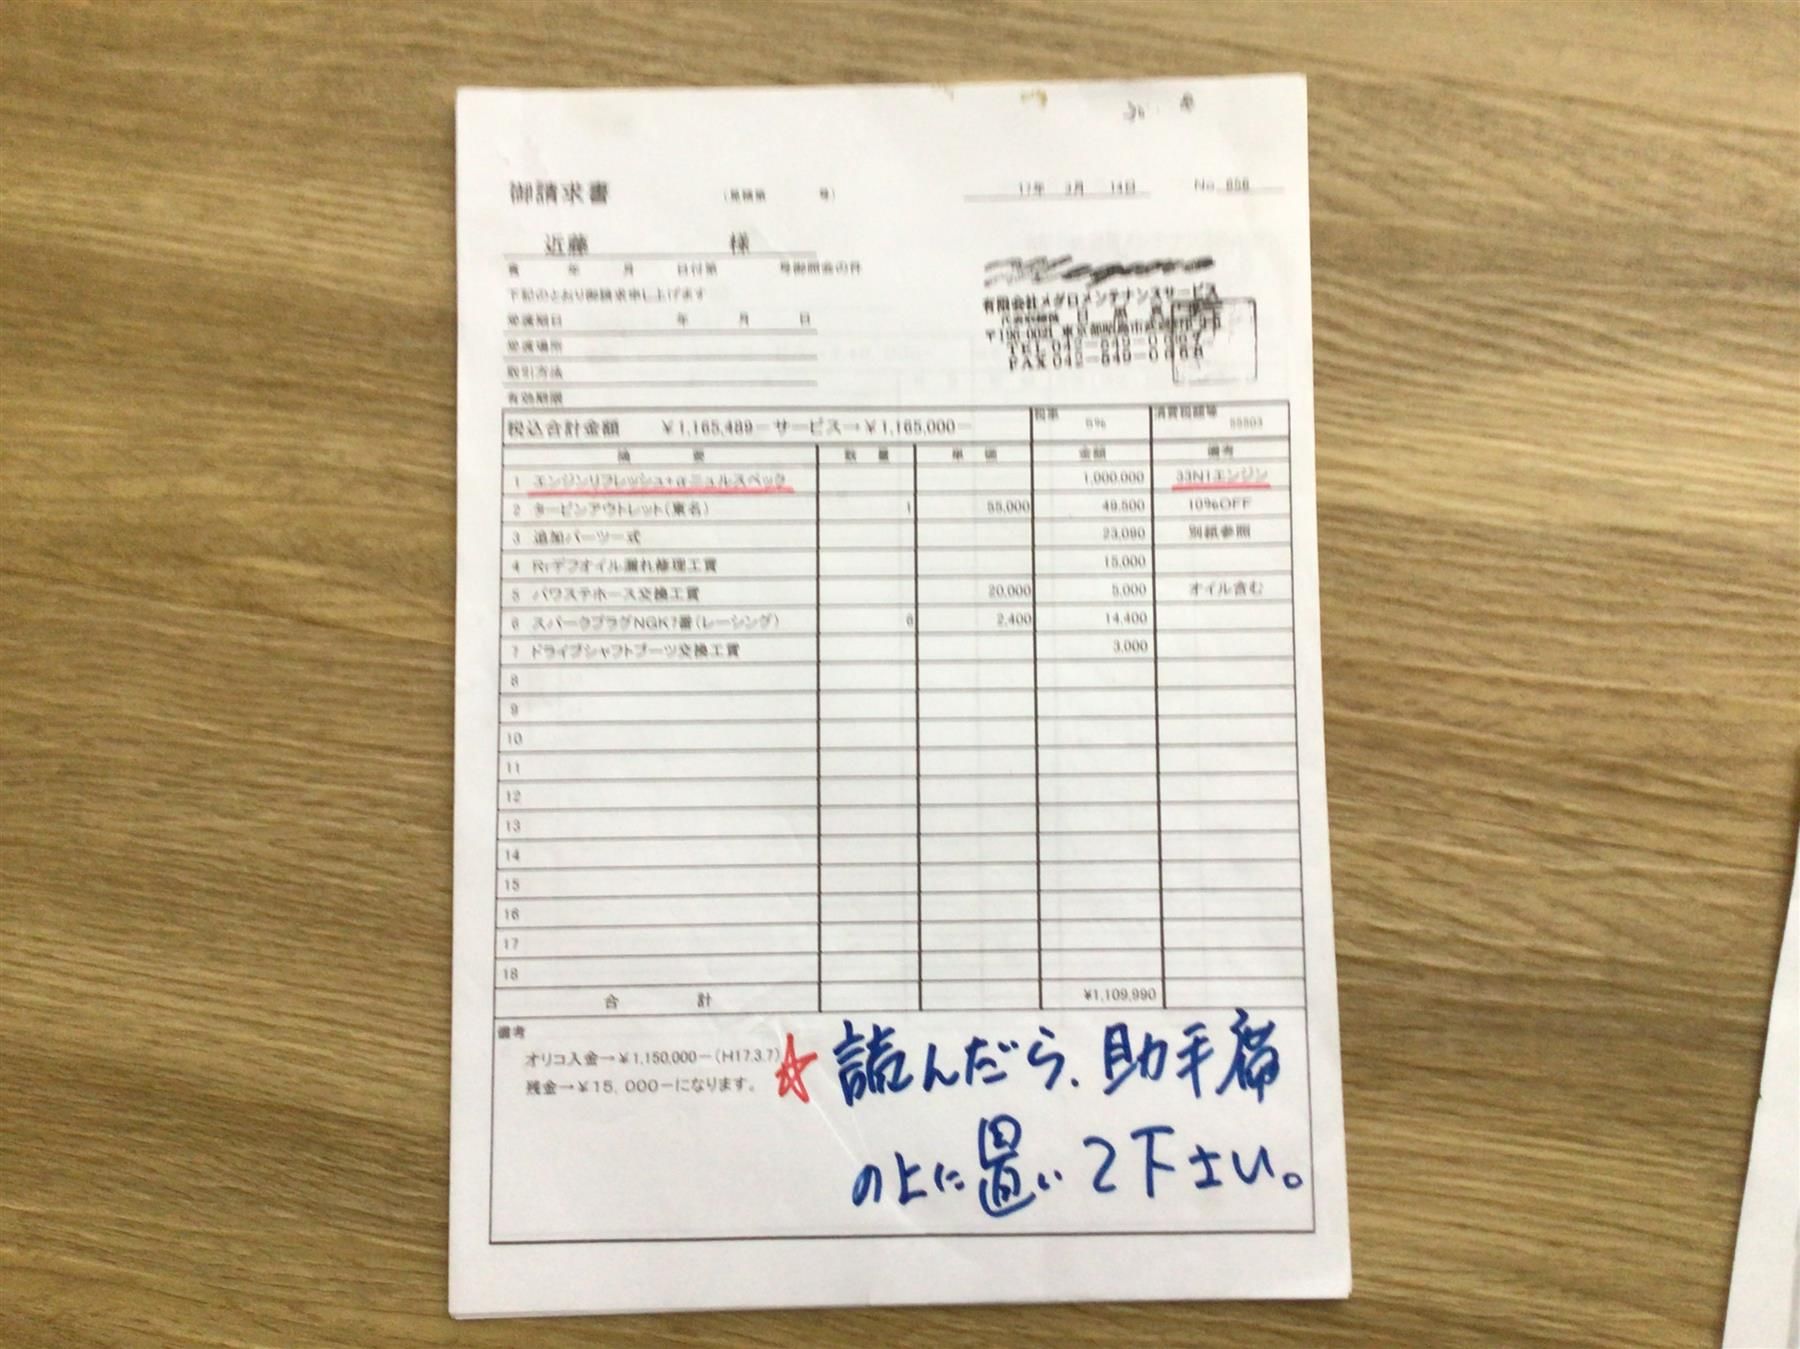 御請求書 (見積第 号) 17年 3月 14日 No. 656
近藤 様
貴 年 月 日付第 号御照会の件
下記のとおり御請求申し上げます
受渡期日 年 月 日
受渡場所
取引方法
有効期限
有限会社メグロメンテナンスサービス
税込合計金額 ¥1,165,489-サービス→¥1,165,000- 税率 5% 消費税額等 55503
摘 要 数 量 単 価 金額 備考
1 エンジンリフレッシュ+αニュルスペック 1,000,000 33N1エンジン
2 タービンアウトレット(東名) 1 55,000 49,500 10%OFF
3 追加パーツ一式 23,090 別紙参照
4 Rrデフオイル漏れ修理工賃 15,000
5 パワステホース交換工賃 20,000 5,000 オイル含む
6 スパークプラグNGK7番(レーシング) 6 2,400 14,400
7 ドライブシャフトブーツ交換工賃 3,000
8
9
10
11
12
13
14
15
16
17
18
合 計 ¥1,109,990
備考
オリコ入金→¥1,150,000-(H17.3.7)
残金→¥15,000-になります。
☆ 読んだら、助手席
の上に置いて下さい。